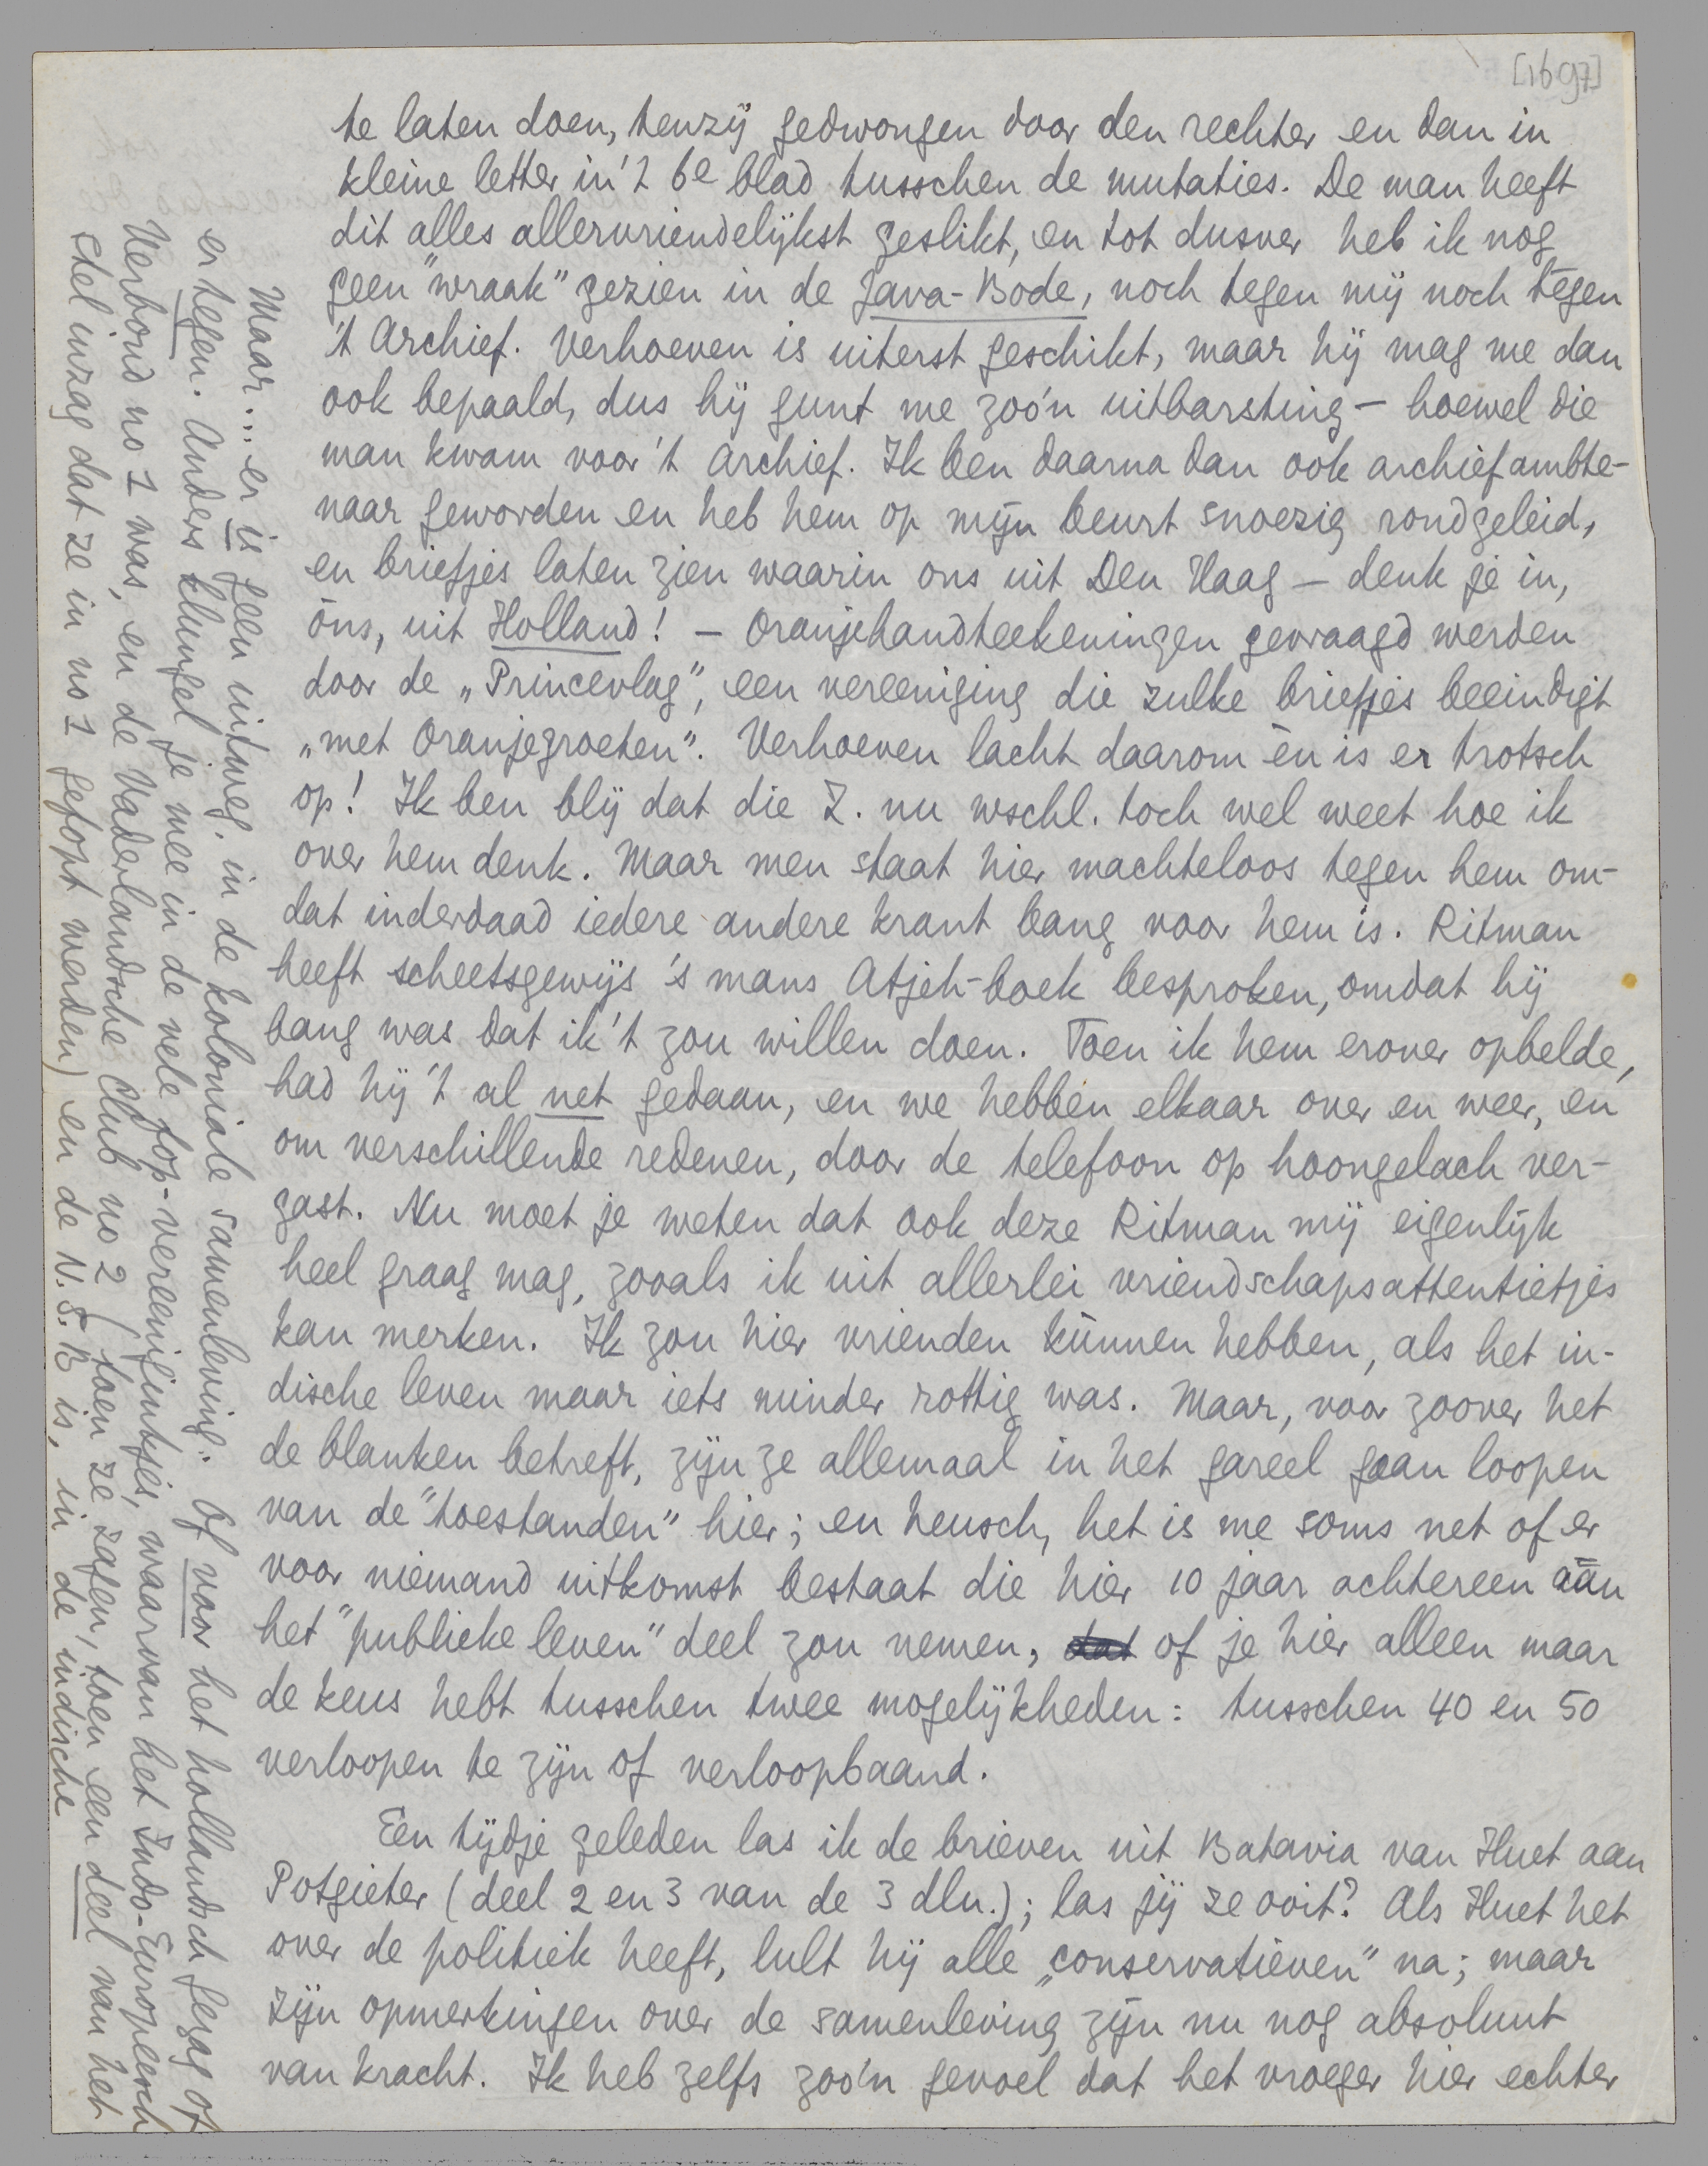 [1697]
te laten doen, tenzij gedwongen door den rechter en dan in
kleine letter in 't 6e blad tusschen de mutaties. De man heeft
dit alles allervriendelijkst geslikt, en tot dusver heb ik nog
geen "wraak" gezien in de Java-Bode, noch tegen mij noch tegen
't Archief. Verhoeven is uiterst geschikt, maar hij mag me dan
ook bepaald, dus hij gunt me zoo'n uitbarsting – hoewel die
man kwam voor 't Archief. Ik ben daarna dan ook archiefambte-
naar geworden en heb hem op mijn beurt snoezig rondgeleid,
en briefjes laten zien waarin ons uit Den Haag – denk je in,
óns, uit Holland! – Oranjehandteekeningen gevraagd werden
door de „Princevlag", een vereeniging die zulke briefjes beeindigt
„met Oranjegroeten". Verhoeven lacht daarom èn is er trotsch
op! Ik ben blij dat die Z. nu wschl. toch wel weet hoe ik
over hem denk. Maar men staat hier machteloos tegen hem om-
dat inderdaad iedere andere krant bang voor hem is. Ritman
heeft scheetsgewijs 's mans Atjeh-boek besproken, omdat hij
bang was dat ik 't zou willen doen. Toen ik hem erover opbelde,
had hij 't al net gedaan, en we hebben elkaar over en weer, en
om verschillende redenen, door de telefoon op hoongelach ver-
gast. Nu moet je weten dat ook deze Ritman mij eigenlijk
heel graag mag, zooals ik uit allerlei vriendschapsattentietjes
kan merken. Ik zou hier vrienden kúnnen hebben, als het in-
dische leven maar iets minder rottig was. Maar, voor zoover het
de blanken betreft, zijn ze allemaal in het gareel gaan loopen
van de "toestanden" hier; en heusch, het is me soms net of er
voor niemand uitkomst bestaat die hier 10 jaar achtereen áán
het "publieke leven" deel zou nemen, dat of je hier alleen maar
de keus hebt tusschen twee mogelijkheden: tusschen 40 en 50
verloopen te zijn of verloopbaand.
Een tijdje geleden las ik de brieven uit Batavia van Huet aan
Potgieter (deel 2 en 3 van de 3 dln.); las jij ze ooit? Als Huet het
over de politiek heeft, lult hij alle „conservatieven" na; maar
zijn opmerkingen over de samenleving zijn nu nog absoluut
van kracht. Ik heb zelfs zoo'n gevoel dat het vroeger hier echter
Maar... er is geen uitweg in de koloniale samenleving. Of voor het hollandsch gezag of
er tegen. Anders klungel je mee in de vele fop-vereenigintjes, waarvan het Indo-Europeesch
Verbond no 1 was, en de Vaderlandsche Club no 2 (toen ze zagen, toen een deel van het
stel inzag dat ze in no 1 gefopt werden) en de N.S.B is, in de indische